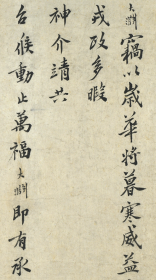 大淵竊以歲華將暮寒威益
戎政多暇
神介請共
台候動止萬福大淵即有承